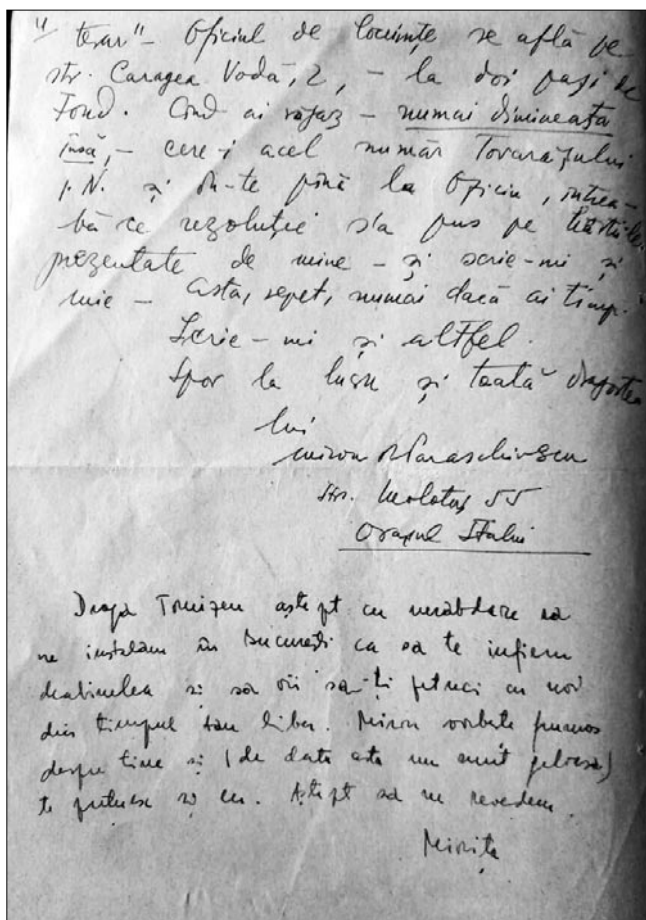 "tesar" - Oficiul de locuințe se află pe
str. Caragea Vodă, 2, - la doi pași de
Fond. Cînd ai răgaz - numai dimineața
însă, - cere-i acel număr Tovarășului
I.N. și du-te pînă la Oficiu, întrea-
bă ce rezoluție s'a pus pe hîrtiile
prezentate de mine - și scrie-mi și
mie - Asta, repet, numai dacă ai timp.
Scrie-mi și altfel.
Spor la lucru și toată dragostea
lui
Miron R Paraschivescu
Str. 55
Orașul Stalin
Draga Tomizeu aștept cu nerăbdare sa
ne instalam în București ca sa te infiem
deabinelea si sa vii sa-ți petreci cu noi
din timpul tau liber. Miron vorbeste frumos
despre tine si (de data asta nu sunt geloasa)
te si eu. Aștept sa ne revedem.